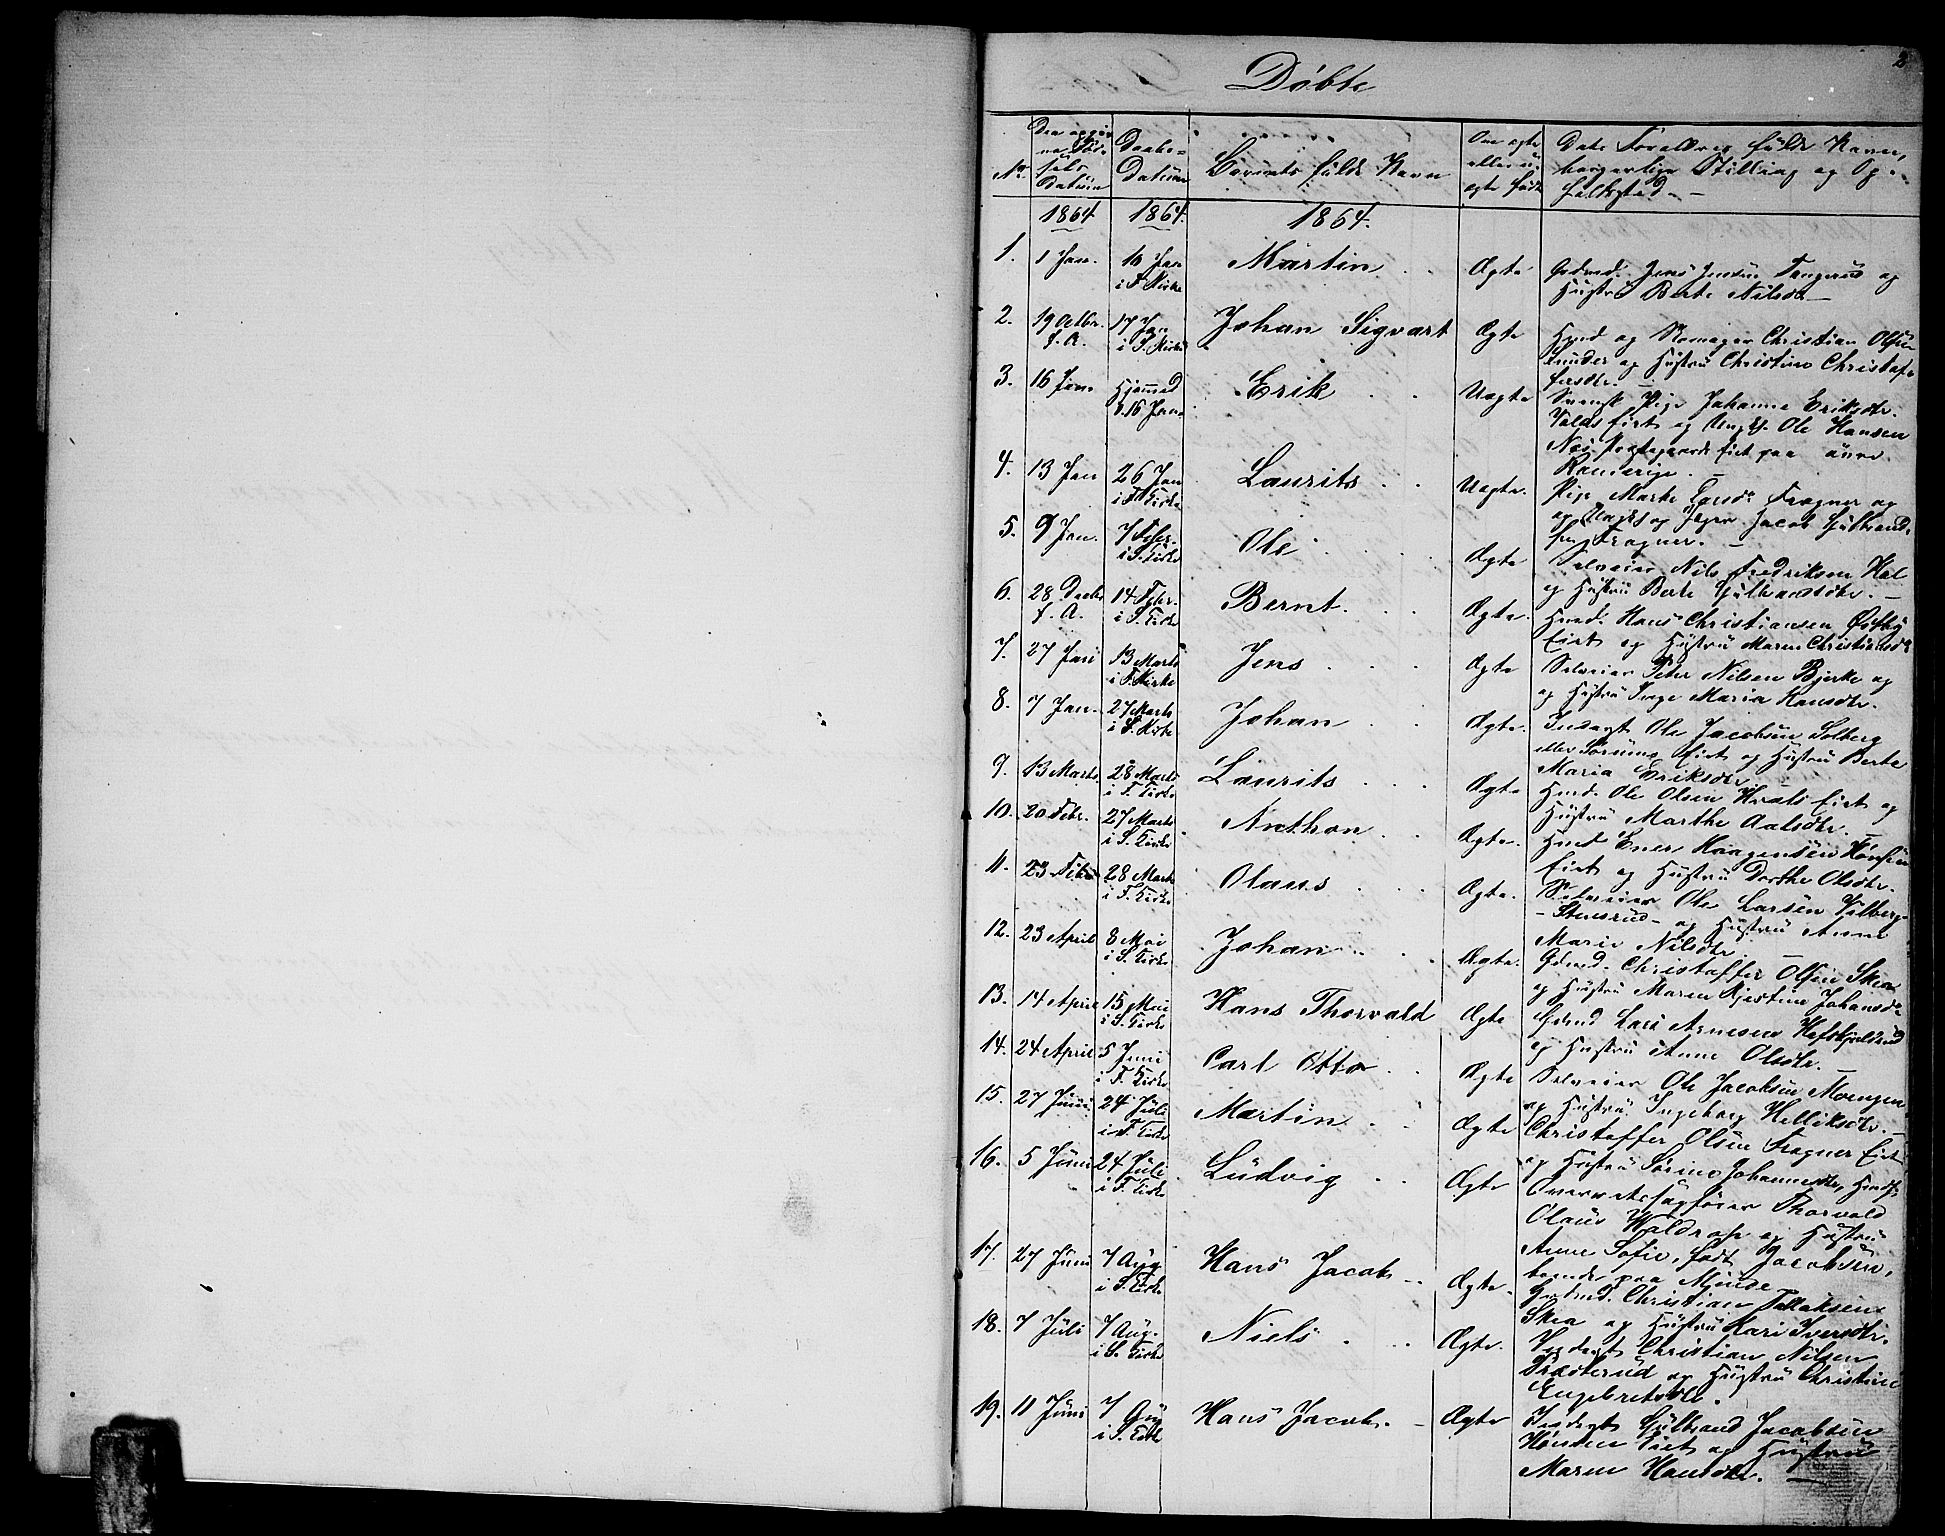 2
Døbte
No.
Datum
Daabs-
Datum
Barnets fulde Navn
Om ægte
eller u-
ægte født
Dets Forældres fulde Navn,
borgerlige Stilling og Op-
holdssted.
1864 1864. 1864.
1. 1 Jan. 10 Jan i F. Kirke Martin Ægte Gdmd. Jens Jensen Tangerud og
Hustru Berte Nilsdtr
2. 19 Octbr. f. A. 17 Jan i S. Kirke Johan Sigvart Ægte Hmd og Skomager Christian Olsen
og Hustru Christine Christof-
fersdtr.
3. 16 Jan. Hjemmed. 16 Jan. Erik Uægte Svensk Pige Johanne Eriksdtr.
eiet og Ungk. Ole Hansen
Næs Præstegaards Eiet paa øvre
Romerige.
4. 13 Jan 26 Jan i F. Kirke Laurits Uægte. Pige Marte Larsdtr Fragner og
Jacob Gulbrand-
sen Fragner.
5. 9 Jan. 7 Febr. i S. Kirke Ole Ægte Selveier Nils Fredriksen Hol
og Hustru Berte Gulbrandsdtr.
6. 28 Decbr f. A. 14 Febr. i S. Kirke Bernt. Ægte. Hmd. Hans Christiansen Østby
Eiet og Hustru Maren Christiansdtr
7. 27 Jan 13 Marts i F. Kirke Jens Ægte Selveier Peter Nilsen Bjerke og
og Hustru Inge Maria Hansdtr.
8. 7 Jan. 27 Marts i S. Kirke Johan Ægte. Inderst Ole Jacobsen Solberg
eller Sørums Eiet og Hustru Berte
Maria Eriksdtr
9. 13 Marts 28 Marts i F. Kirke Laurits Ægte Hmd. Ole Olsen Hvals Eiet og
Hustru Marthe Aatsdtr.
10. 20 Febr. 27 Marts i S. Kirke Anthon Ægte. Hmd Ener Haagensen Hønsen
Eiet og Hustru Dorthe Olsdtr.
11. 23 Febr 28 Marts i F. Kirke Olaus Ægte. Selveier Ole Larsen Vilberg
Stensrud og Hustru Anne
Marie Nilsdtr.
12. 23 April 8 Mai i S. Kirke Johan Ægte. Gdmd. Christoffer Olsen Skea
og Hustru Maren Kjestine Johansdtr
13. 14 April 15 Mai i S. Kirke Hans Thorvald Ægte Gdmd Lars Arnesen
og Hustru Anne Olsdtr.
14. 24 April 5 Juni i F. Kirke Carl Otto Ægte Selveier Ole Jacobsen Moengen
og Hustru Ingeborg Helliksdtr.
15. 27 Juni 24 Juli i F. Kirke Martin Ægte Christoffer Olsen Fragner Eiet
og Hustru Sørine Johannesdtr,
16. 5 Juni 24 Juli i F. Kirke Ludvig Ægte Overretssagfører Thorvald
Olaus og Hustru
Anne Sofie, født Jacobsen,
boende paa Mjønde
17. 27 Juni 7 Aug i S. Kirke Hans Jacob Ægte. Gdmd. Christian
Skea og Hustru Kari Iversdtr.
18. 7 Juli 7 Aug. i S. Kirke Niels Ægte. Inderst Christian Nilsen
Præsterud og Hustru Christine
Engebretsdtr.
19. 11 Juni 7 Aug i S. Kirke Hans Jacob. Ægte Inderst Gulbrand Jacobsen
Hønsen Eiet og Hustru
Maren Hansdtr.